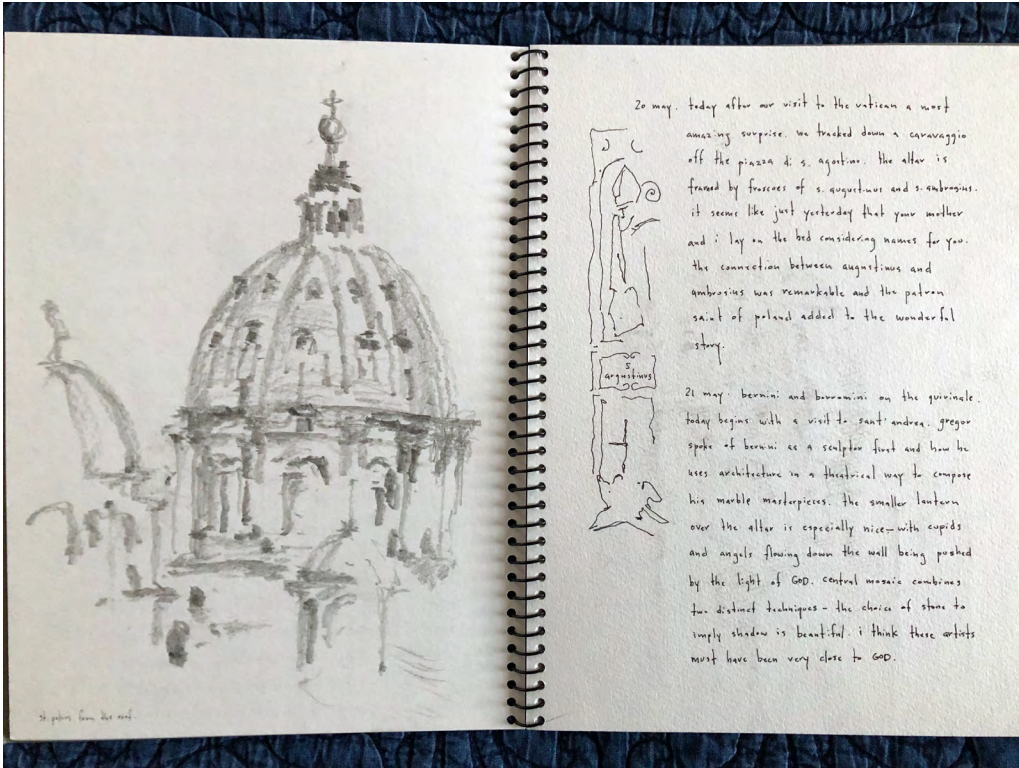 st. peters from the roof.
20 may. today after our visit to the vatican a most
amazing surprise. we tracked down a caravaggio
off the piazza di s. agostino. the altar is
framed by froscoes of s. augustinus and s. ambrosius.
it seems like just yesterday that your mother
and i lay on the bed considering names for you.
the connection between augustinus and
ambrosius was remarkable and the patron
saint of poland added to the wonderful
story.
S
augustinus
21 may. bernini and borromini on the quirinale.
today begins with a visit to sant' andrea. gregor
spoke of bernini as a sculptor first and how he
uses architecture in a theatrical way to compose
his marble masterpieces. the smaller lantern
over the altar is especially nice - with cupids
and angels flowing down the wall being pushed
by the light of GOD. central mosaic combines
two distinct techniques - the choice of stone to
imply shadow is beautiful. i think these artists
must have been very close to GOD.